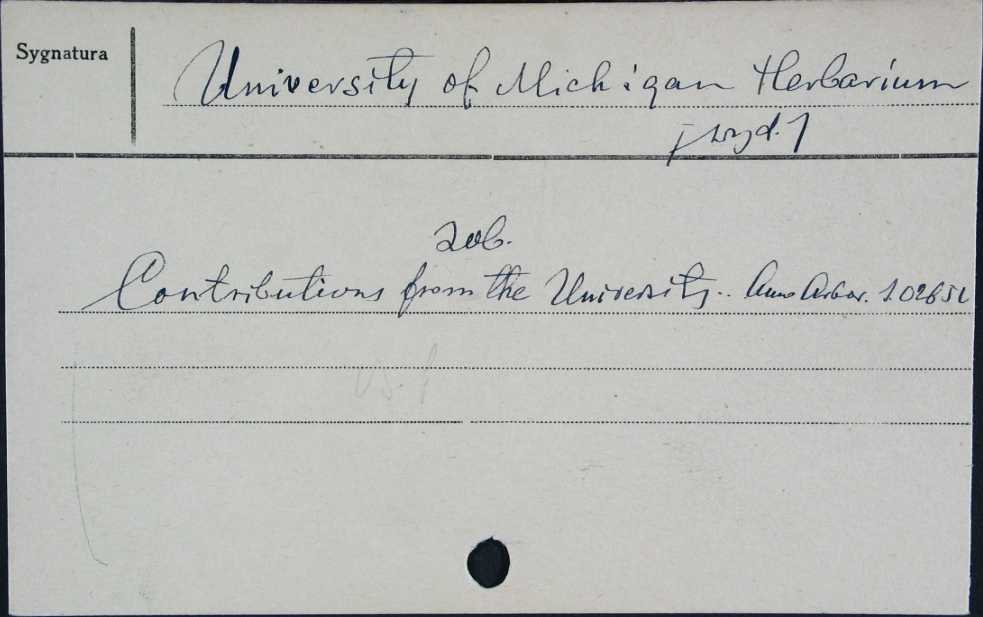 Sygnatura
University of Michigan Herbarium
[wyd.]
zob.
Contributions from the University.. Ann Arbor. S.02651